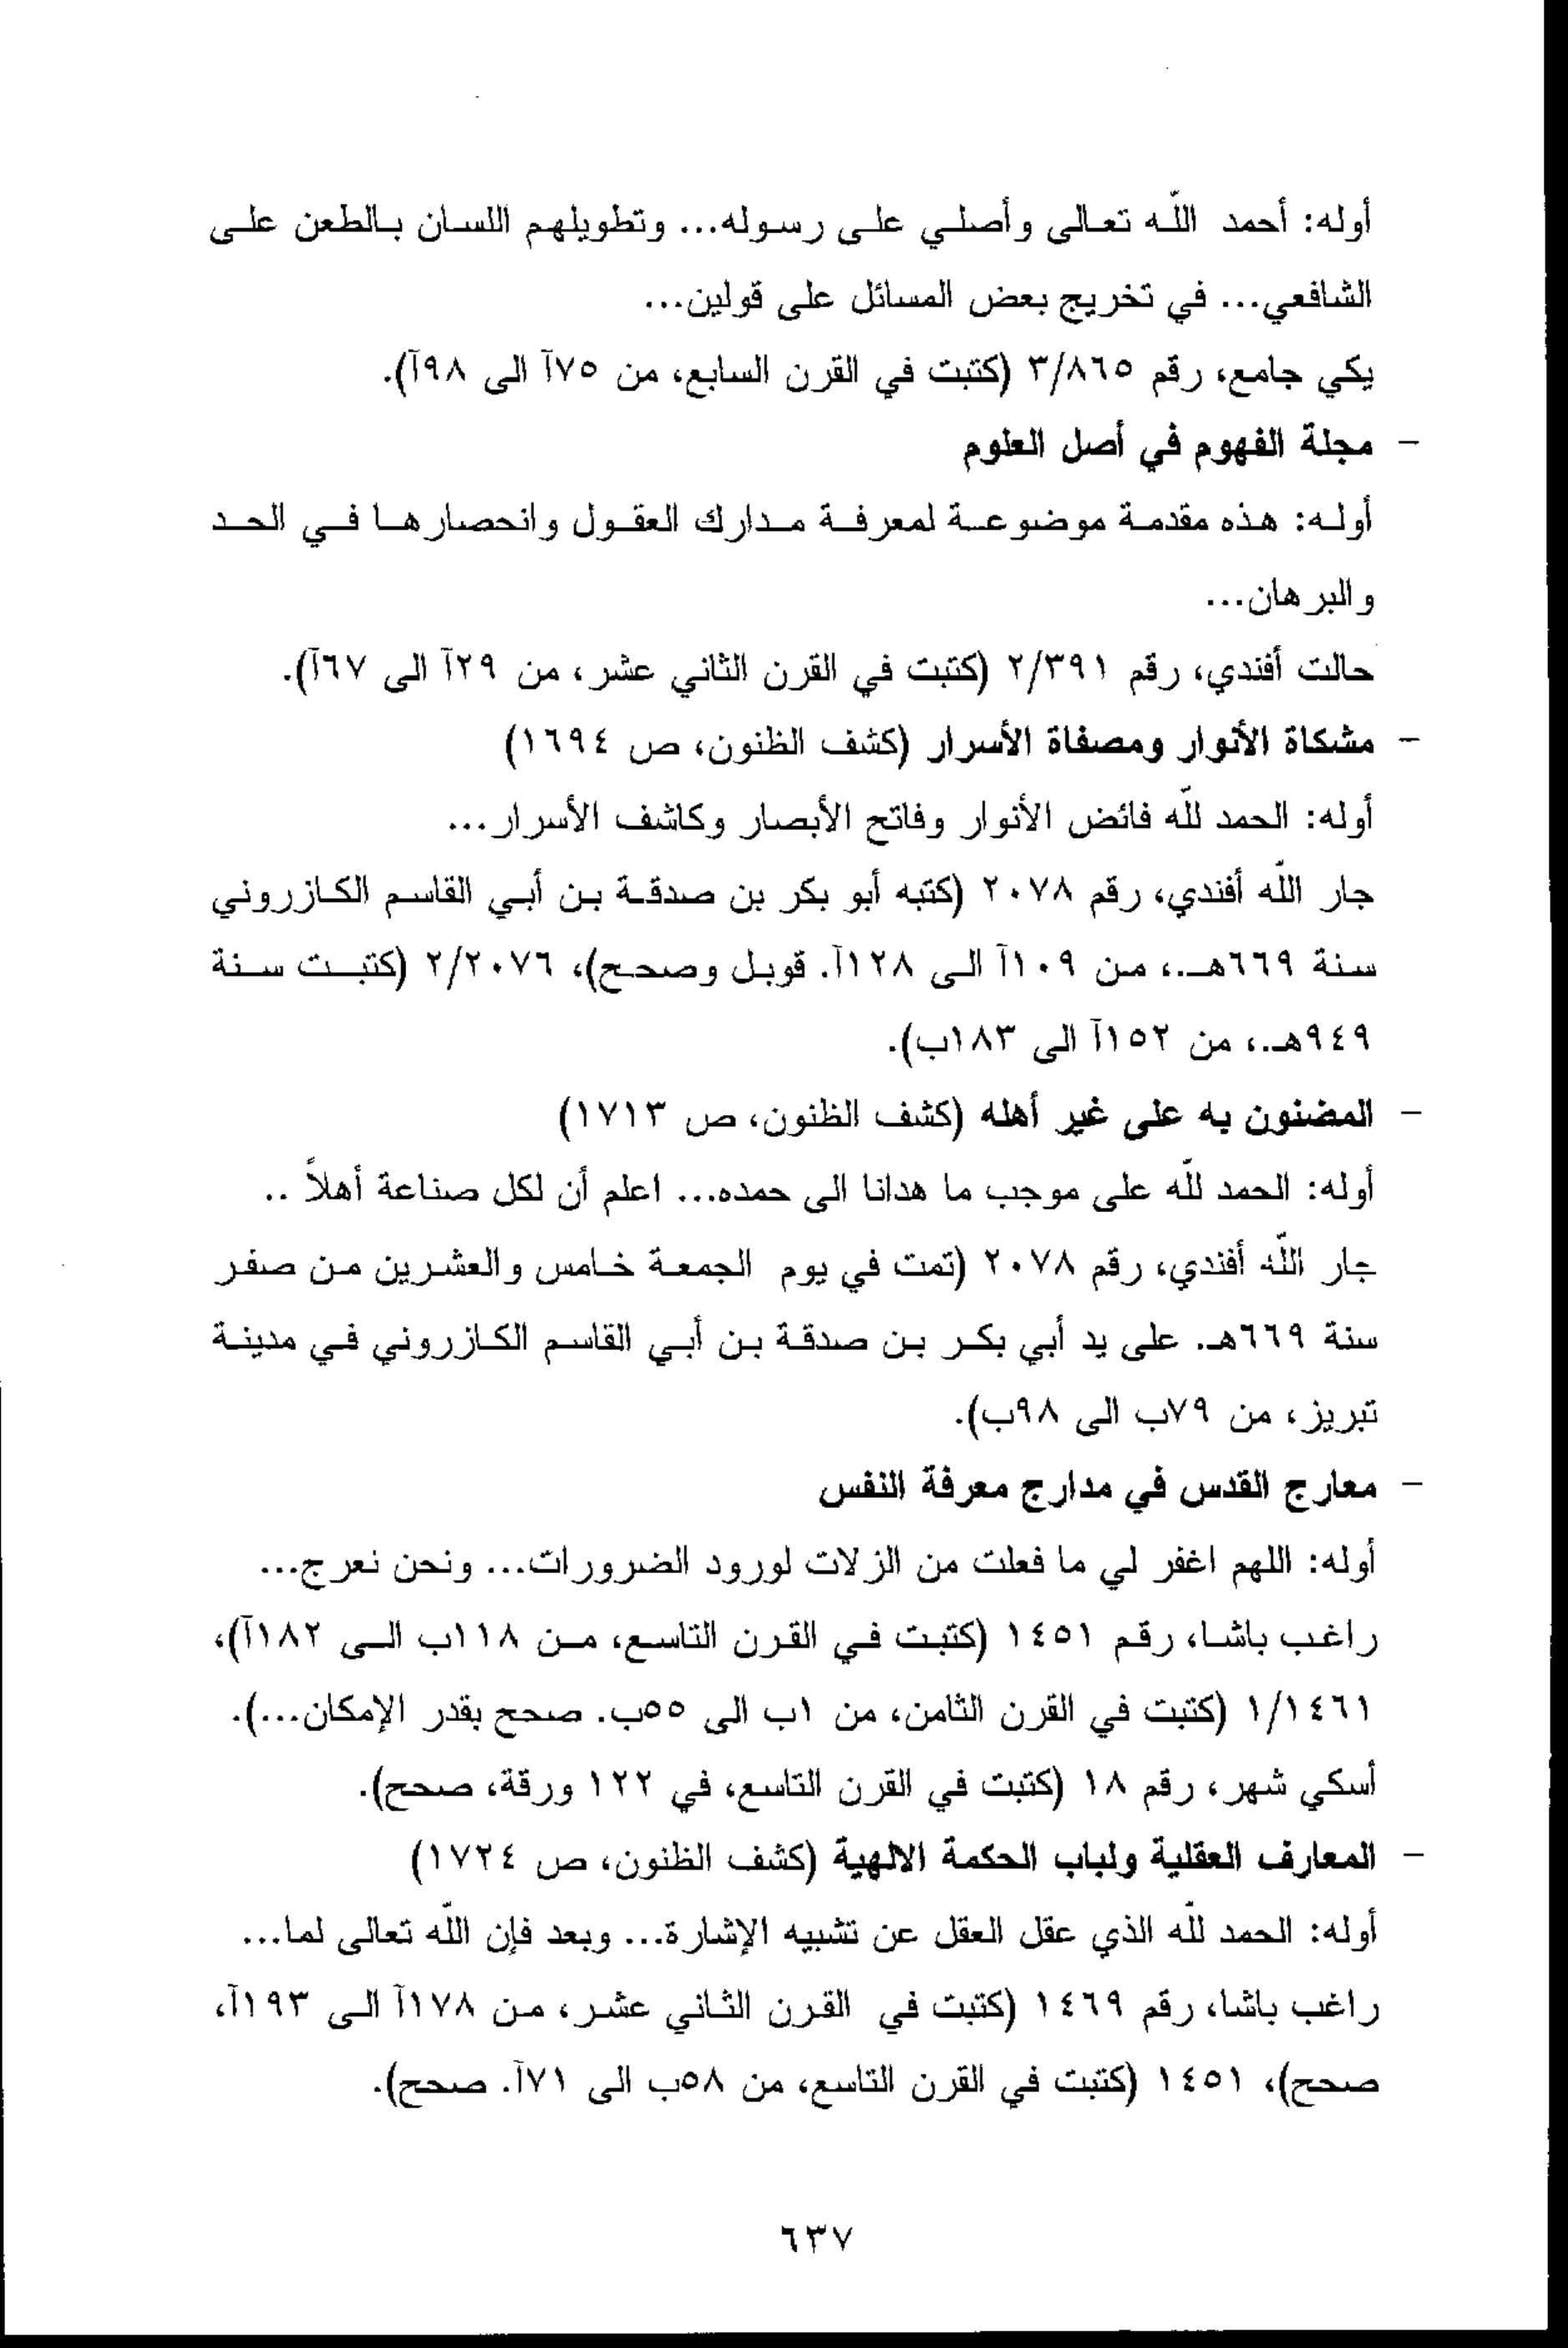 أوله: أحمد اللّه تعالى وأصلي على رسوله... وتطويلهم اللسان بالطعن على
الشافعي... في تخريج بعض المسائل على قولين...
يكي جامع، رقم ٣/٨٦٥ (كتبت في القرن السابع، من ٧٥آ الى ٩٨آ).
- مجلة الفهوم في أصل العلوم
أوله: هذه مقدمة موضوعة لمعرفة مدارك العقول وانحصارها في الحد
والبرهان...
حالت أفندي، رقم ٢/٣٩١ (كتبت في القرن الثاني عشر، من ٢٩آ الى ٦٧آ).
- مشكاة الأنوار ومصفاة الأسرار (كشف الظنون، ص ١٦٩٤)
أوله: الحمد للّه فائض الأنوار وفاتح الأبصار وكاشف الأسرار...
جار اللّه أفندي، رقم ٢٠٧٨ (كتبه أبو بكر بن صدقة بن أبي القاسم الكازروني
سنة ٦٦٩هـ.، من ١٠٩آ الى ١٢٨آ. قوبل وصحح)، ٢/٢٠٧٦ (كتبت سنة
٩٤٩هـ.، من ١٥٢آ الى ١٨٣ب).
- المضنون به على غير أهله (كشف الظنون، ص ١٧١٣)
أوله: الحمد للّه على موجب ما هدانا الى حمده... اعلم أن لكل صناعة أهلاً ..
جار اللّه أفندي، رقم ٢٠٧٨ (تمت في يوم الجمعة خامس والعشرين من صفر
سنة ٦٦٩هـ. على يد أبي بكر بن صدقة بن أبي القاسم الكازروني في مدينة
تبريز، من ٧٩ب الى ٩٨ب).
- معارج القدس في مدارج معرفة النفس
أوله: اللهم اغفر لي ما فعلت من الزلات لورود الضرورات... ونحن نعرج...
راغب باشا، رقم ١٤٥١ (كتبت في القرن التاسع، من ١١٨ب الى ١٨٢آ)،
١/١٤٦١ (كتبت في القرن الثامن، من ١ب الى ٥٥ب. صحح بقدر الإمكان...).
أسكي شهر، رقم ١٨ (كتبت في القرن التاسع، في ١٢٢ ورقة، صحح).
- المعارف العقلية ولباب الحكمة الالهية (كشف الظنون، ص ١٧٢٤)
أوله: الحمد للّه الذي عقل العقل عن تشبيه الإشارة... وبعد فإن اللّه تعالى لما...
راغب باشا، رقم ١٤٦٩ (كتبت في القرن الثاني عشر، من ١٧٨آ الى ١٩٣آ،
صحح)، ١٤٥١ (كتبت في القرن التاسع، من ٥٨ب الى ٧١آ. صحح).
٦٣٧